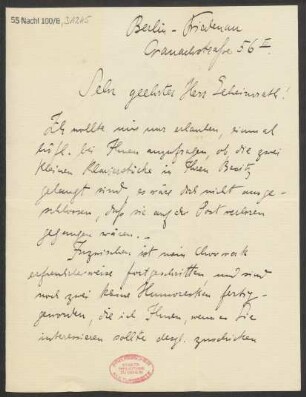 55 Nachl 100/B,
Berlin-Friedenau
Cranachstraße 56 II.
Sehr geehrter Herr Geheimrath!
Ich wollte mir nur erlauben, einmal
höfl. bei Ihnen anzufragen, ob die zwei
kleinen in Ihren Besitz
gelangt sind, es wäre doch nicht ausge-
schlossen, daß sie auf der Post verloren
gegangen wären. –
Inzwischen ist mein
erfreulicherweise fortgeschritten und sind
noch zwei kleine fertig-
geworden, die ich Ihnen, wenn es Sie
interessieren sollte zuschicken